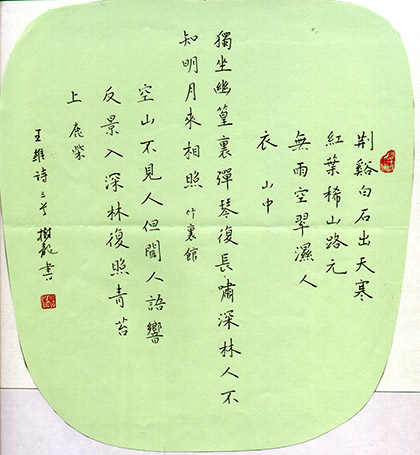 荆谿白石出天寒
紅葉稀山路元
無雨空翠濕人
衣 山中
獨坐幽篁裏彈琴復長嘯深林人不
知明月來相照 竹裏館
空山不見人但聞人語響
反景入深林復照青苔
上 鹿柴
王維诗三首 樹龍書